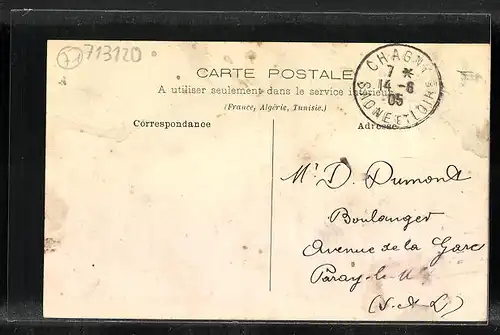 71 713120
CHAGNY
7 *
14 -6
05
SAONE-ET-LOIRE
CARTE POSTALE
A utiliser seulement dans le service intérieur
(France, Algérie, Tunisie.)
Correspondance
Adresse
Mr D. Dumont
Boulanger
Avenue de la Gare
Paray-le-M
(S.-&-L.)